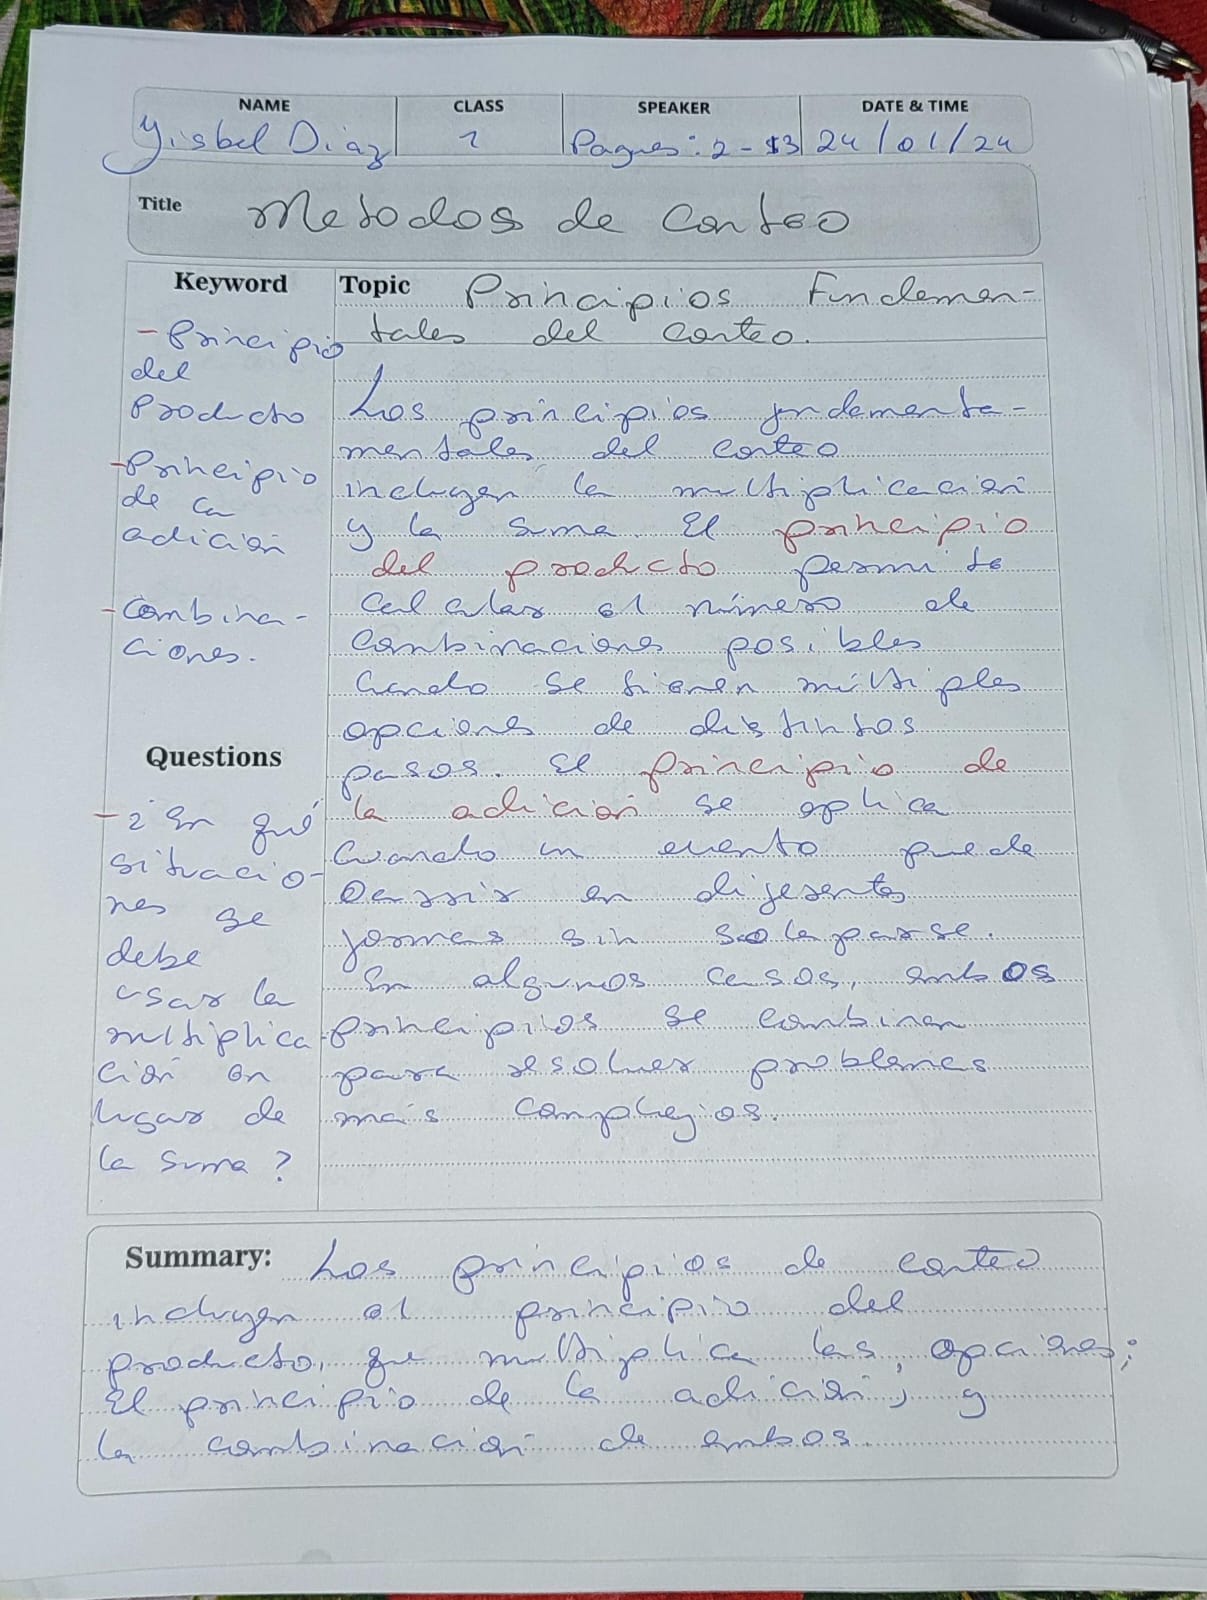 NAME CLASS SPEAKER DATE & TIME
Yisbel Diaz 1 Pagnes: 2 - 13 24/01/24
Title Metodos de Conteo
Keyword
- Principio
del
Producto
- Principio
de la
adición
- Combina-
ciones.
Questions
- ¿En qué
situacio-
nes se
debe
usar la
multiplica-
ción en
lugar de
la suma?
Topic Principios Fundamen-
tales del conteo.
Los principios fundamenta-
mentales del conteo
incluyen la multiplicación
y la suma. El principio
del producto permite
calcular el número de
combinaciones posibles
cuando se tienen múltiples
opciones de distintos
pasos. El principio de
la adición se aplica
Cuando un evento puede
ocurrir en diferentes
formas sin solaparse.
En algunos casos, ambos
principios se combinan
para resolver problemas
más complejos.
Summary: Los principios de conteo
incluyen el principio del
producto, que multiplica las opciones;
El principio de la adición; y
la combinación de ambos.